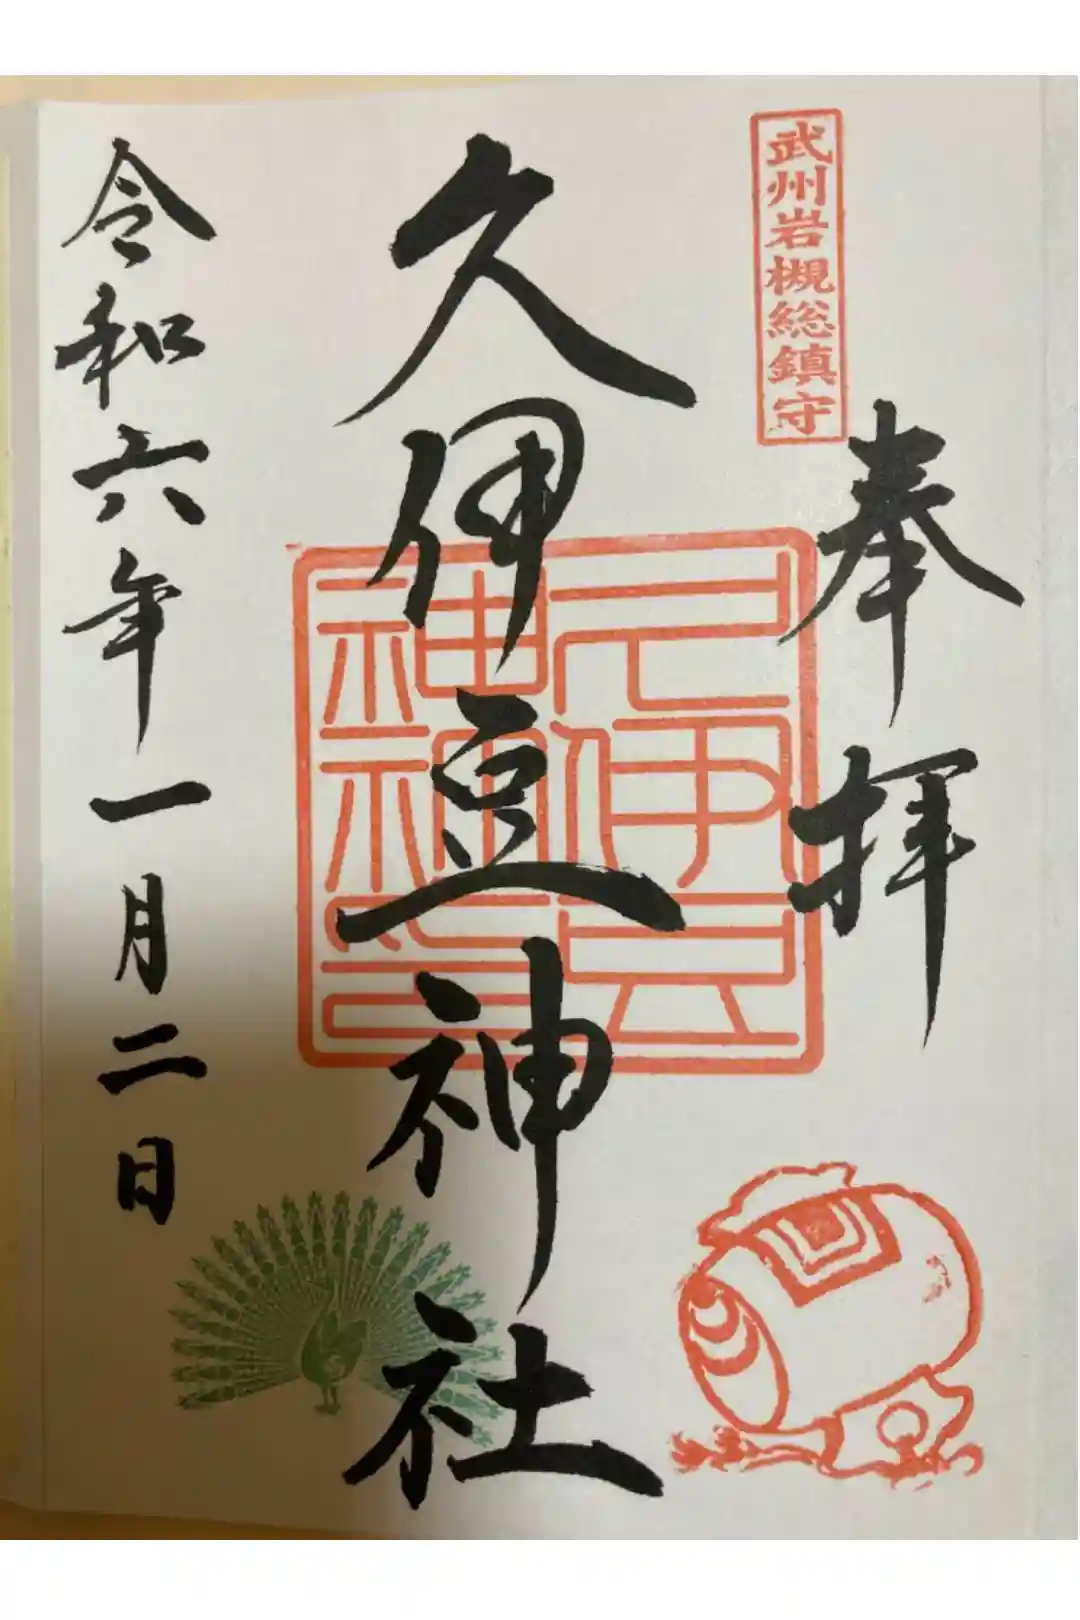 武州岩槻総鎮守
奉拝
久伊豆神社
久伊豆
神社神印
令和六年一月二日